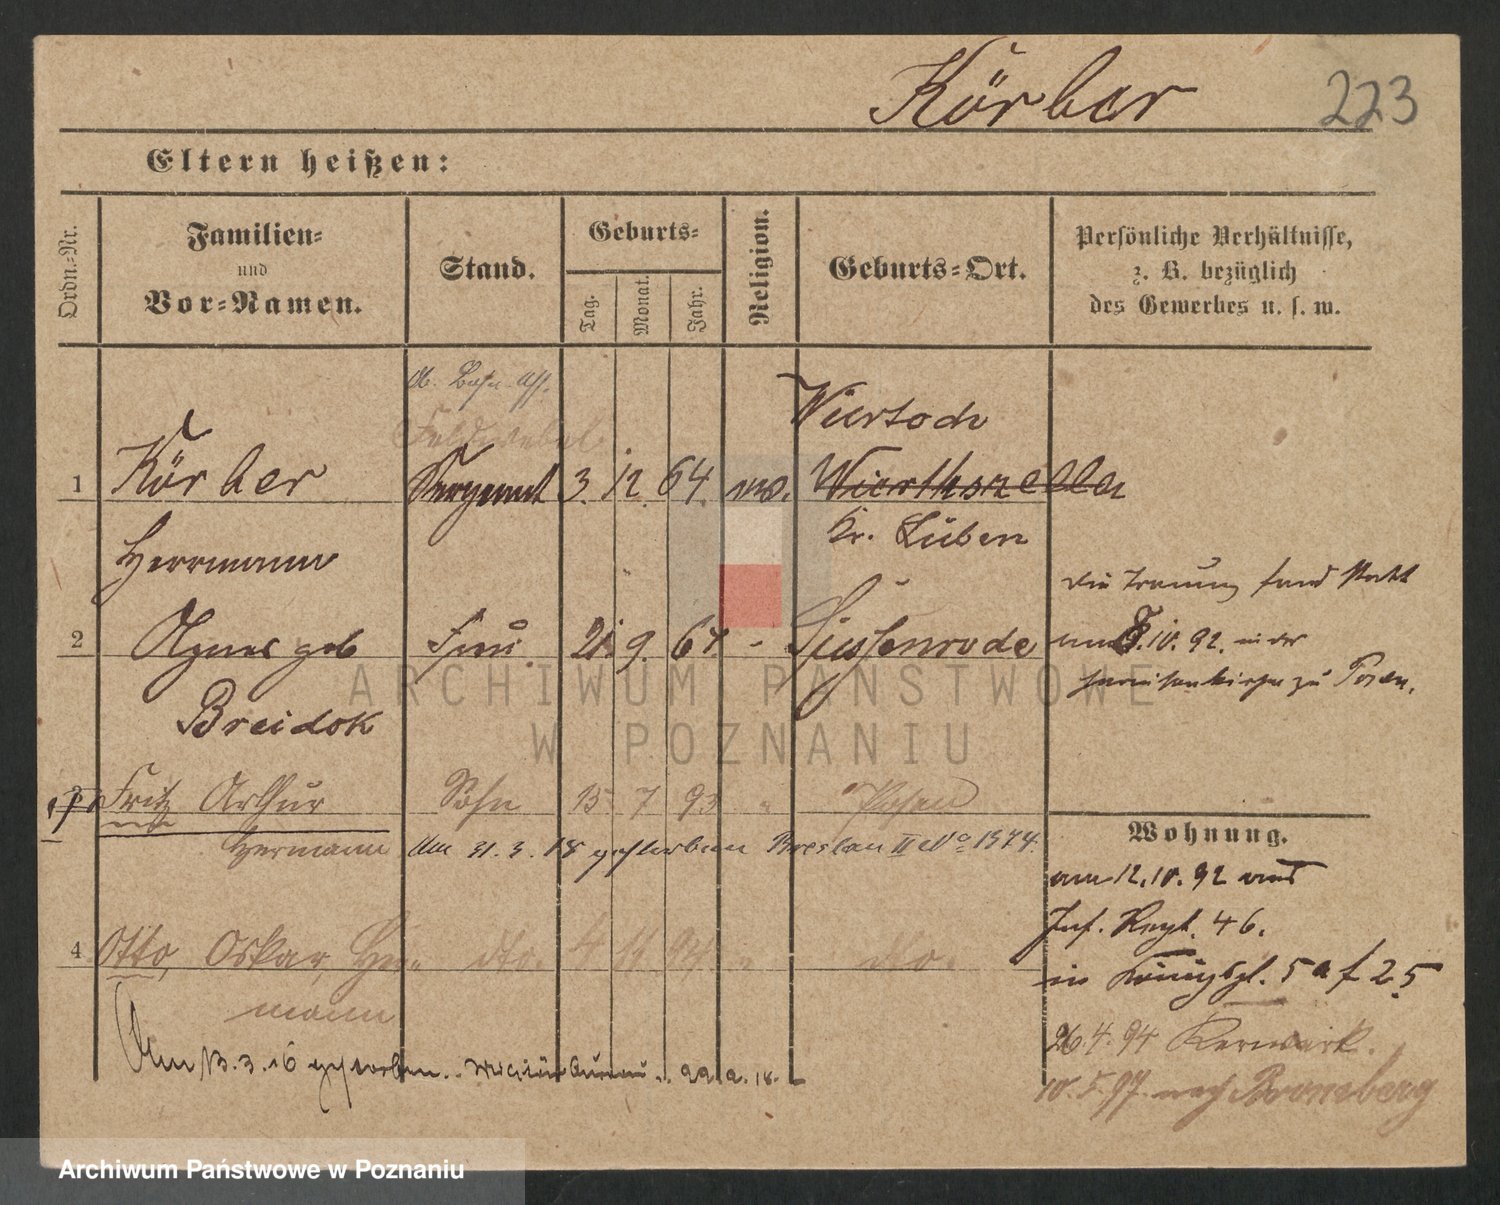 Körber 223
Eltern heißen:
Ordn.-Nr.
Familien-
und
Vor-Namen.
Stand.
Geburts-
Tag.
Monat.
Jahr.
Religion.
Geburts-Ort.
Persönliche Verhältnisse,
z. B. bezüglich
des Gewerbes u. s. w.
Feldwebel
1 Körber Sergeant 3. 12. 64.
Herrmann
Kr. Lüben
2 Agnes geb Frau 9.
Breidok
die Trauung fand statt
10. 92. in der
zu Posen.
3 Fritz Arthur Sohn 15 7 93 " Posen
Hermann Am 31. 3. 18 gestorben Breslau II No 1374.
4 Otto, Oskar, Her- dto. 4 11 94 " dto.
mann
Am 13. 3. 16 gestorben.
Wohnung.
am 12. 10. 92 aus
Inf. Regt. 46.
in Königspl. 5a f 25
26. 4. 94 Kernwerk.
10. 5. 97. nach Bromberg
ARCHIWUM PAŃSTWOWE
W POZNANIU
Archiwum Państwowe w Poznaniu